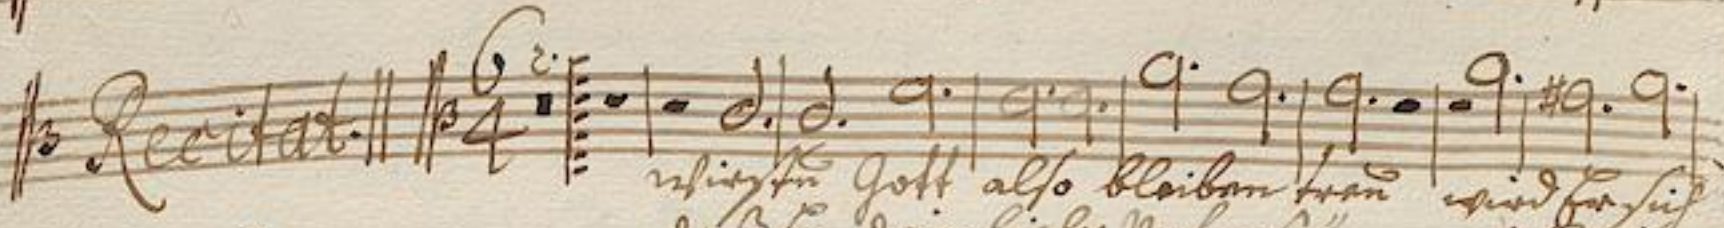 Recitat. 6 4 2.
wirstu Gott also bleiben treu wird Er sich